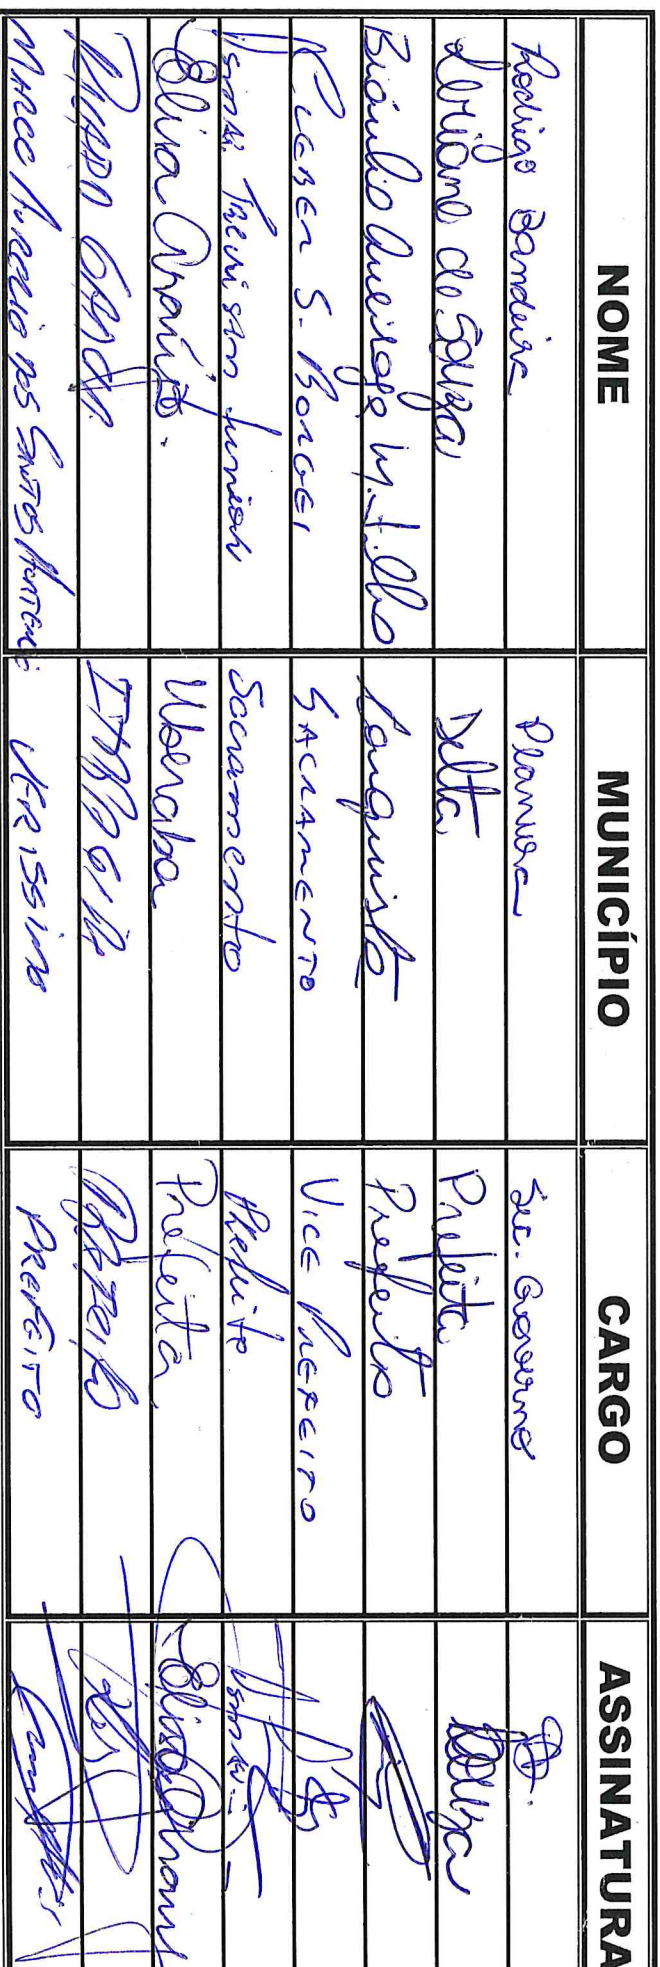 NOME MUNICÍPIO CARGO ASSINATURA
Rodrigo Bandeira Planura Sec. Governo
de Souza Delta Prefeita Souza
Bráulio Queiroga M. Filho Conquista Prefeito
Cleber S. Borges SACRAMENTO VICE PREFEITO
Trevisan Junior Sacramento Prefeito
Elisa Araújo. Uberaba Prefeita Elisa Araujo
Prefeito
MARCO AURELIO DOS SANTOS VERISSIMO PREFEITO